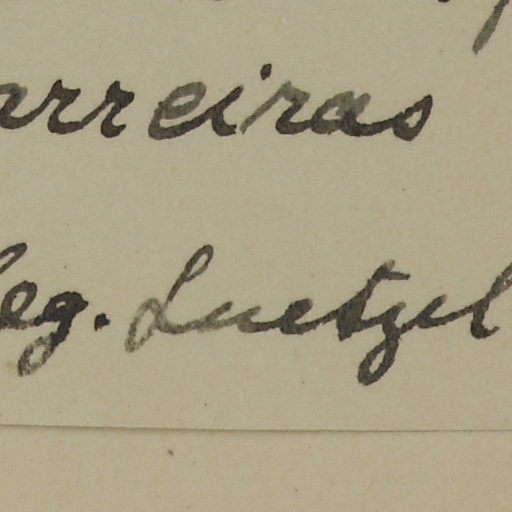 arreiras
leg. Luetzel